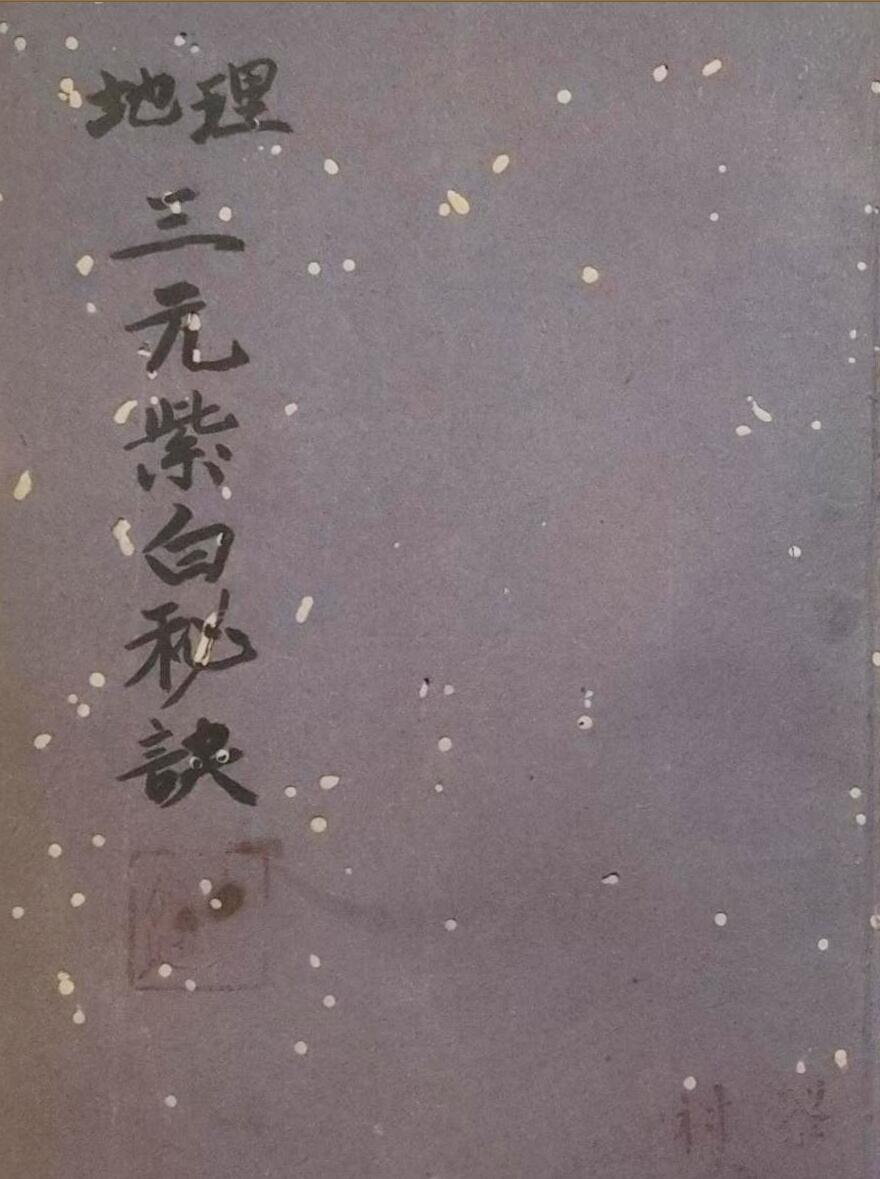 地理
三元紫白秘訣